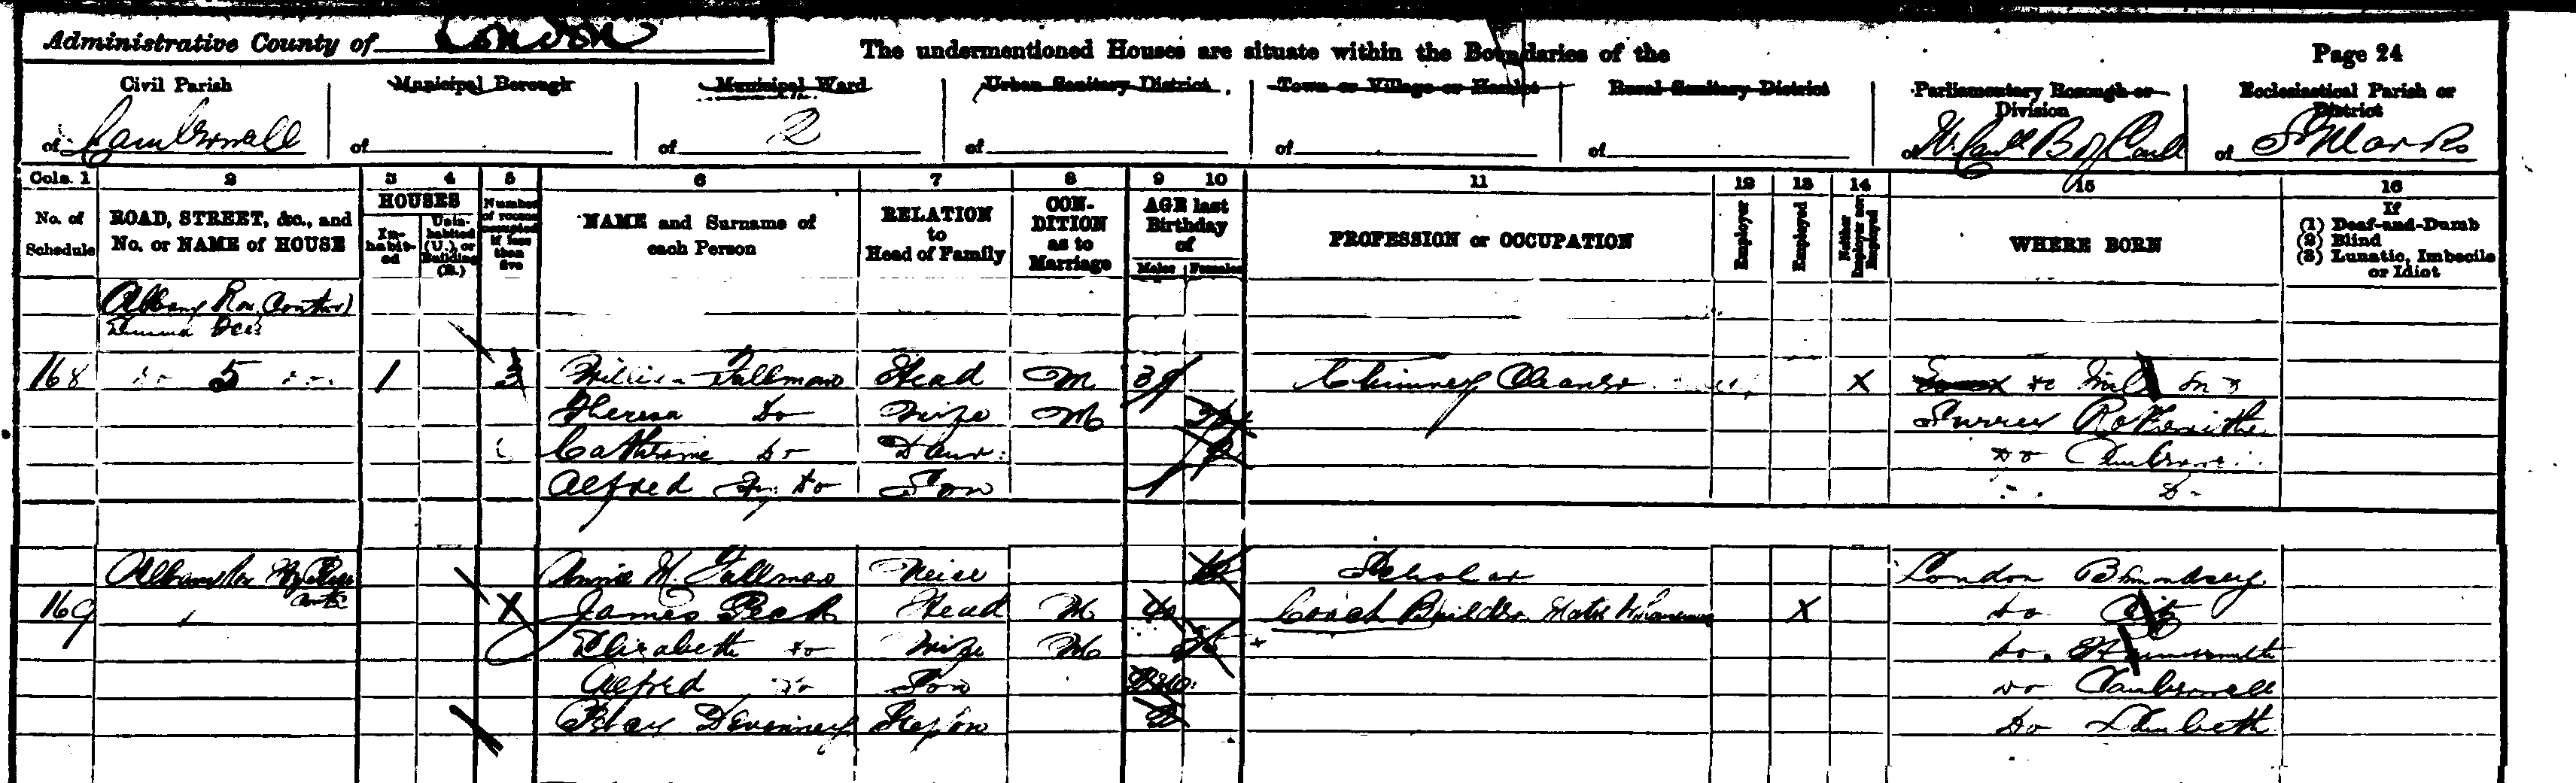 Administrative County of London
The undermentioned Houses are situate within the Boundaries of the
Page 24
Civil Parish Municipal Borough Municipal Ward Urban Sanitary District Town or Village or Hamlet Rural Sanitary District Parliamentary Borough or Division Ecclesiastical Parish or District
of Camberwell of of 2 of of of of of St Marks
Cols. 1 2 3 4 5 6 7 8 9 10 11 12 13 14 15 16
No. of Schedule
ROAD, STREET, &c., and No. or NAME of HOUSE
HOUSES
In-habit-ed
Unin-habited (U.) or Building (B.)
Number of rooms occupied if less than five
NAME and Surname of each Person
RELATION to Head of Family
CON-DITION as to Marriage
AGE last Birthday of
Males Females
PROFESSION or OCCUPATION
Employer
Employed
Neither Employer nor Employed
WHERE BORN
If
(1) Deaf-and-Dumb
(2) Blind
(3) Lunatic, Imbecile or Idiot
Albany Row
168 do 5 do 1 3 William Tallman Head M 39 Chimney Cleaner X
Theresa Do Wife M Surrey Rotherhithe
Catherine Do Daur. Do
Alfred Do Son 1 Do
Annie M. Tallman Neice Scholar London Bermondsey
169 James Peck Head M Coach Builder X Do City
Elizabeth Do Wife M Do. Hammersmith
Alfred Do Son Do Camberwell
Stepson Do Lambeth